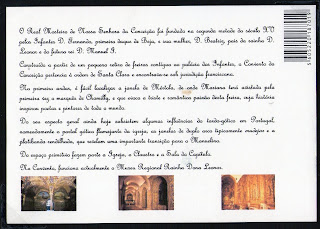 O Real Mosteiro de Nossa Senhora da Conceição foi fundado na segunda metade do século XV
pelos Infantes D. Fernando, primeiro duque de Beja, e sua mulher, D. Beatriz, pais da rainha D.
Leonor e do futuro rei D. Manuel I.
Construído a partir de um pequeno retiro de freiras contíguo ao palácio dos Infantes, o Convento da
Conceição pertencia à ordem de Santa Clara e encontrava-se sob jurisdição franciscana.
No primeiro andar, é fácil localizar a janela de Mértola, de onde Mariana terá avistado pela
primeira vez o marquês de Chamilly, e que viveu a triste e romântica paixão desta freira, cuja história
inspirou poetas e pintores de todo o mundo.
Do seu aspecto geral ainda hoje subsistem algumas influências do tardo-gótico em Portugal,
nomeadamente o portal gótico flamejante da igreja, as janelas de duplo arco tipicamente mudéjar e a
platibanda rendilhada, que revelam uma importante transição para o Manuelino.
Do espaço primitivo fazem parte a Igreja, o Claustro e a Sala do Capítulo.
No Convento, funciona actualmente o Museu Regional Rainha Dona Leonor.